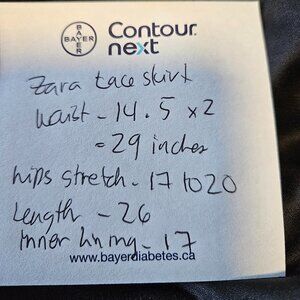 BAYER
BAYER
Contour
next
Zara Lace skirt
waist - 14.5 x2
= 29 inches
hips stretch - 17 to 20
Length - 26
inner lining - 17
www.bayerdiabetes.ca